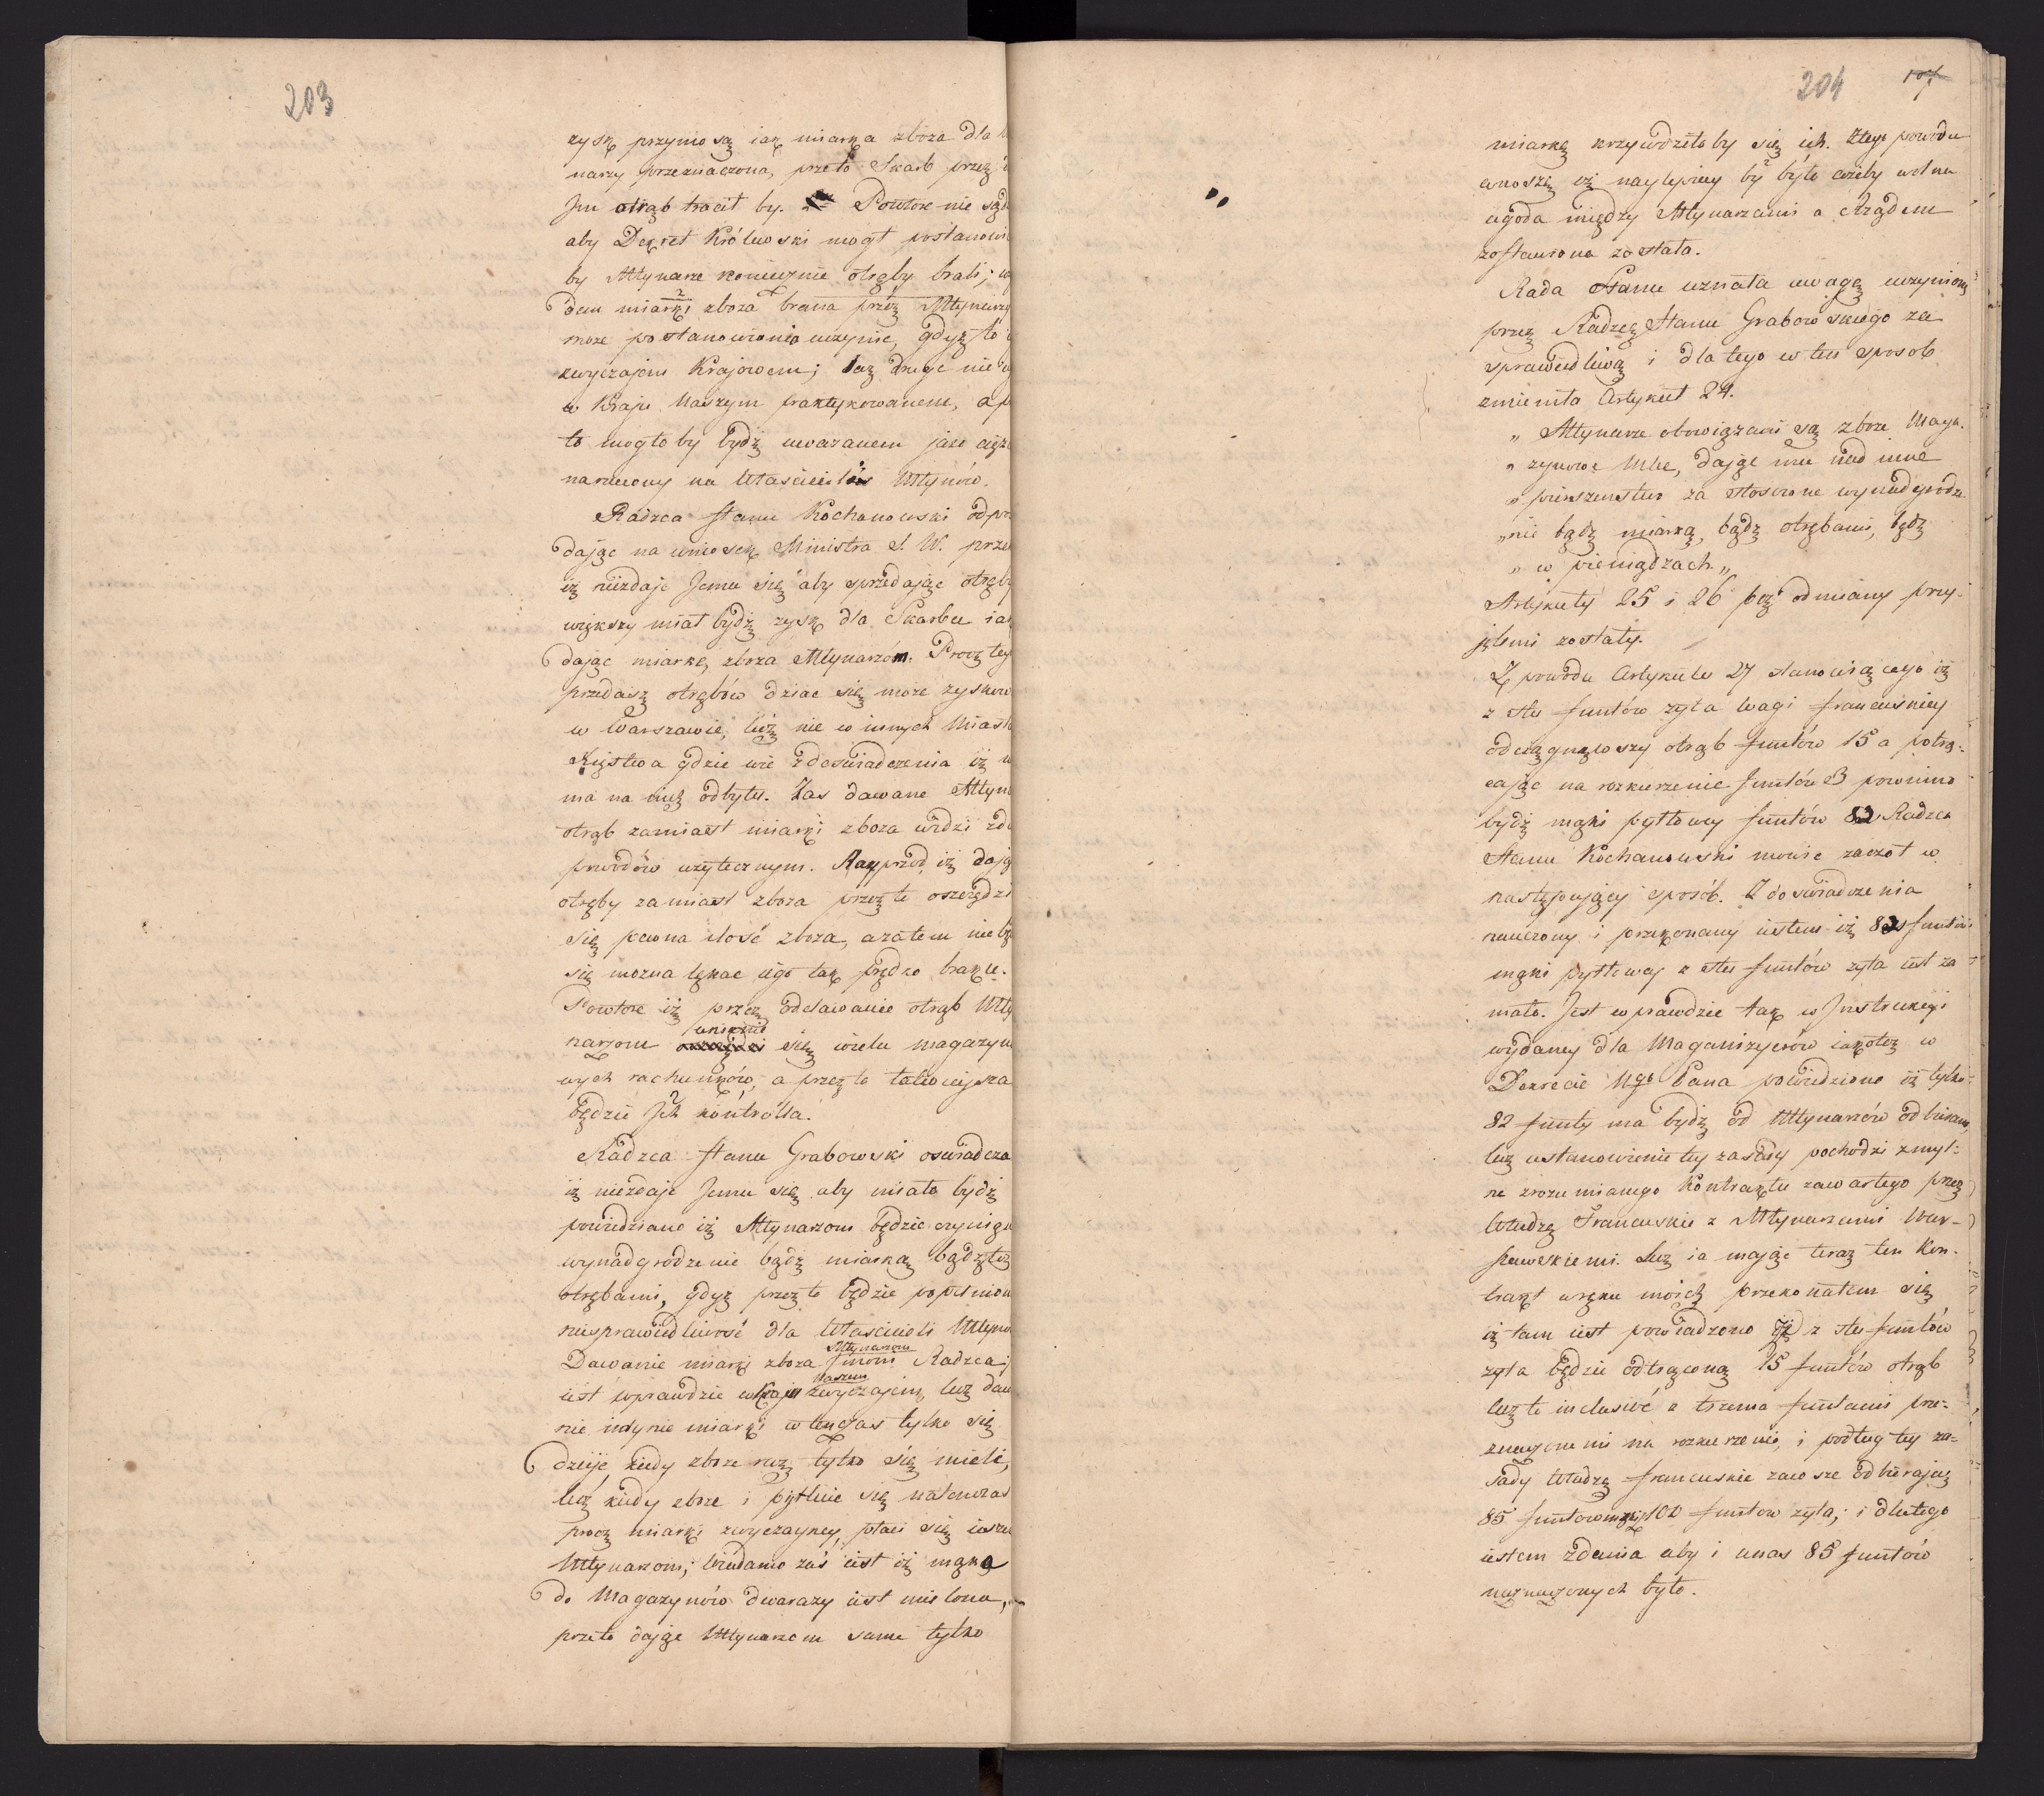 203
zysk przyniosą iak miarka zboża dla
narzy przeznaczona, przeto Skarb przez
Im otrąb tracił by. Powtore nie sąd
aby Dekret Królewski mogł postanowi
by Młynarze koniecznie otręby brali;
dem miarki zboża brana przez Młynarzy
może postanowienie uczynić, gdyż to
zwyczajem Krajowem; zaś drugi nie
w Kraju Naszym praktykowanem, a p
to mogło by bydź uważanem jako cięż
narzucony na Właścicielów Młynów.
Radzca Stanu Kochanowski odpo
dając na wniosek Ministra S. W. prze
iż niezdaje Jemu się aby sprzedając otręby
większy miał bydź zysk dla Skarbu iak
dając miarkę zboża Młynarzom. Procz tey
przedaż otrębów dziać się może zyskow
w Warszawie, lecz nie w innych Miast
Xięstwa gdzie wie z doświadczenia iż
ma na nich odbytu. Zaś dawane Młyn
otrąb zamiast miarki zboża widzi zd
powodów użytecznym. Nayprzód iż dają
otręby zamiast zboża przez to oszczędzi
się pewna ilość zboża, azatem nie bę
się można lękać iego tak prędko braku.
Powtore iż przez oddawanie otrąb Mły
narzom uniknie się wielu magazyn
wych rachunków, a przez to łatwieysza
będzie Ich kontrolla.
Radzca Stanu Grabowski oswiadcza
iż niezdaje Jemu się aby miało bydź
powiedziano iż Młynarzom będzie czynion
wynadgrodzenie bądź miarką bądź też
otrębami, gdyż przez to będzie popełnion
niesprawiedliwość dla Właścicieli Młyno
Dawanie miarki zboża Młynarzom /mowi Radzca/
iest wprawdzie w kraju Naszem zwyczajem, lecz daw
nie iedynie miarki wtenczas tylko się
dzieje kiedy zboże raz tylko się miele,
lecz kiedy zboże i pytluie się natenczas
procz miarki zwyczayney, płaci się ieszcze
Młynarzom; Wiadomo zaś iest iż mąka
do Magazynów dwarazy iest mielona,
przeto dając Młynarzom same tylko
204
107
miarkę krzywdziło by się ich. Z tego powodu
wnoszę iż naylepiey by było ażeby wolna
ugoda między Młynarzami a Rządem
zostawiona została.
Rada Stanu uznała uwagę uczynioną
przez Radzcę Stanu Grabowskiego za
sprawiedliwą i dla tego w ten sposob
zmieniła Artykuł 24.
„ Młynarze obowiązani są zboże Maga-
„ zynowe mleć, dając mu nad inne
„ pierszenstwo za stosowne wynadgrodze
„ nie bądź miarką, bądź otrębami, bądź
„ w pieniądzach „
Artykuły 25 i 26 bez odmiany przy-
jętemi zostały.
Z powodu Artykułu 27 stanowiącego iż
z stu funtów żyta wagi francuskiey
odciągnąwszy otrąb funtów 15 a potrą-
cając na rozkurzenie funtów 3 powinno
bydź mąki pytlowey funtów 82 Radzca
Stanu Kochanowski mowic zaczął w
następujący sposób. Z doświadczenia
nauczony i przekonany iestem iż 82 funtów
mąki pytlowey z stu funtów żyta iest za
mało. Jest wprawdzie tak w Instrukcyi
wydaney dla Magazynierów iakoteż w
Dekrecie Ngo Pana powiedziono iż tylko
82 funty ma bydź od Młynarzów odbierane,
lecz ustanowienie tey zasady pochodzi z myl-
ne zrozumianego Kontraktu zawartego przez
Władzę Francuskie z Młynarzami War-
szawskiemi. Lecz ia mając teraz ten Kon-
trakt w ręku moich przekonałem się
iż tam iest powiedzono iż z stu funtów
żyta będzie odtrąconą 15 funtów otrąb
lecz to inclusivé z trzema funtami prze-
znaczonemi na rozkurzenie, i podług tey za-
sady Władze francuskie zawsze odbierają
85 funtow mąki z 100 funtow żyta; i dlatego
iestem zdania aby i unas 85 funtów
naznaczonych było.